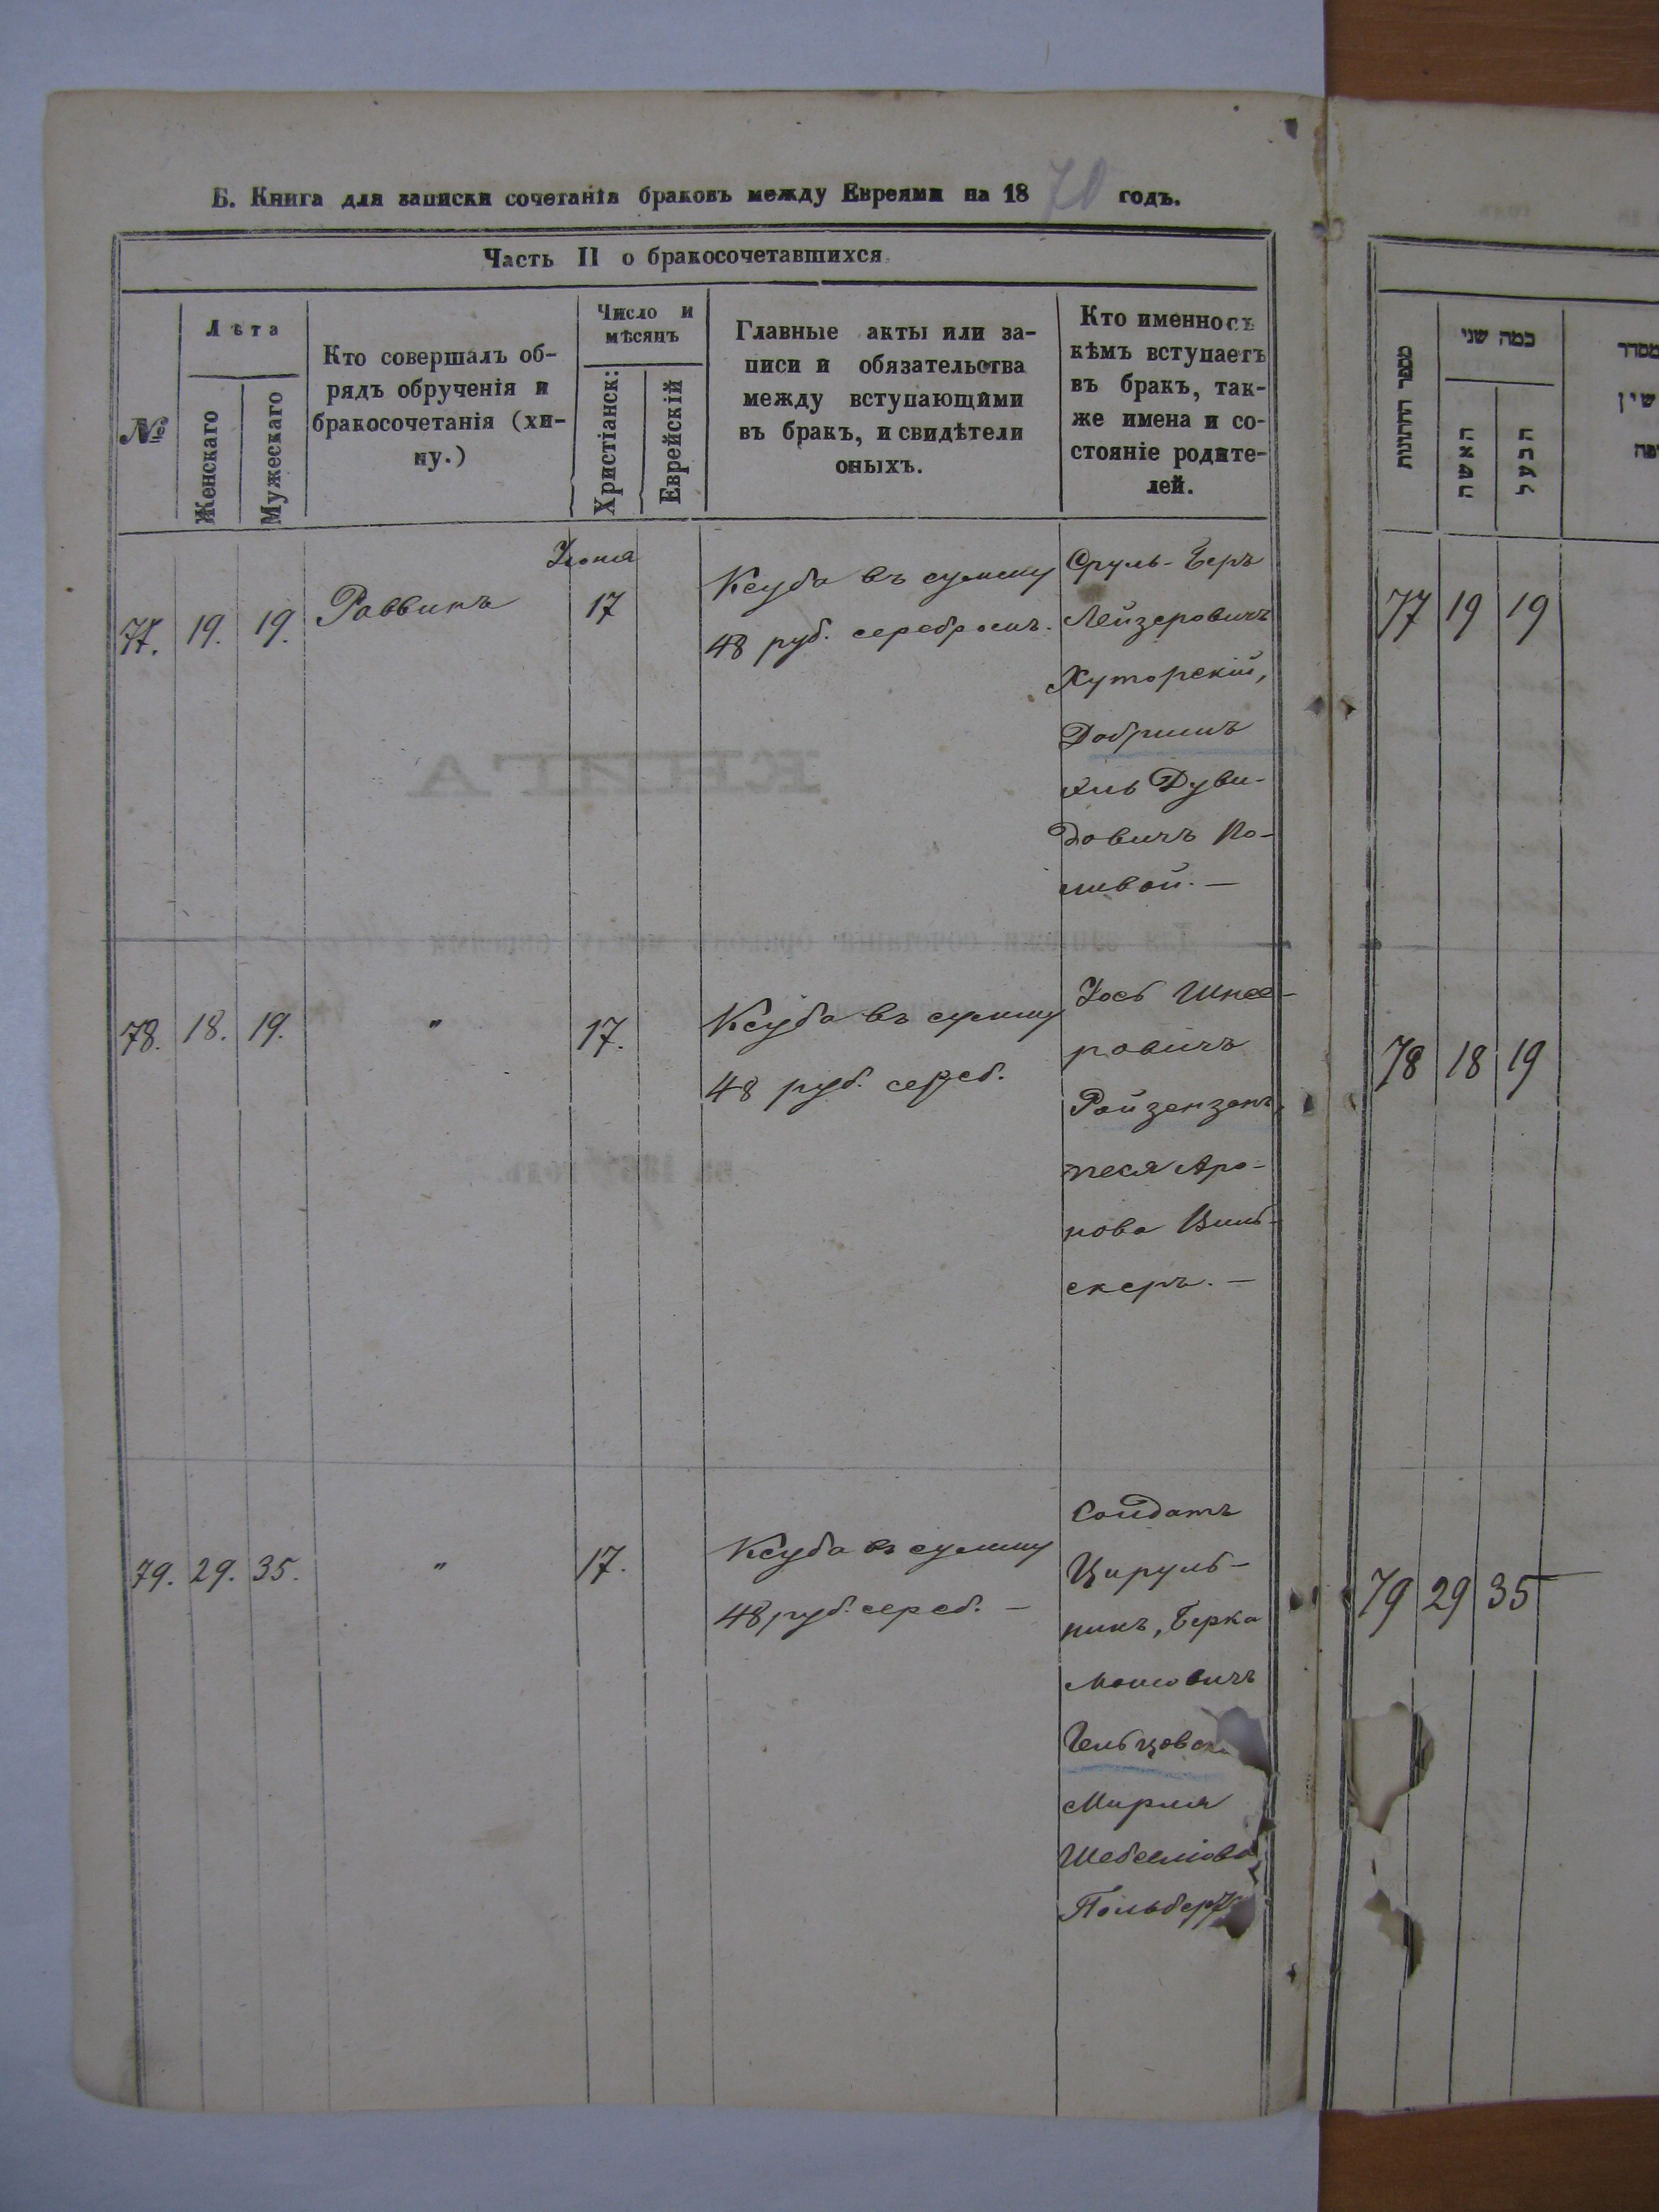 Б. Книга для записки сочетанія браковъ между Евреями на 1870 годъ.
Часть II о бракосочетавшихся
№
Лѣта
Женскаго
Мужескаго
Кто совершалъ об-
рядъ обрученія и
бракосочетанія (хи-
ну.)
Число и
мѣсяцъ
Христіанск:
Еврейскій
Главные акты или за-
писи и обязательства
между вступающими
въ бракъ, и свидѣтели
оныхъ.
Кто именно съ
кѣмъ вступаетъ
въ бракъ, так-
же имена и со-
стояніе родите-
лей.
77. 19. 19. Раввинъ
Іюня
17
Ксуба въ сумму
48 руб. серебромъ.
Сруль-Беръ
Лейзеровичъ
Хуторскій,
Довичъ По-
ливой. —
78. 18. 19. " 17.
Ксуба въ сумму
48 руб. сереб.
Іось Шнее-
ровичъ
Ройзензонъ,
песя Аро-
нова Вин-
скеръ. —
79. 29. 35. " 17.
Ксуба въ сумму
48 руб. сереб. —
Солдатъ
Цируль-
никъ, Берка
Мошковичъ
Мирля
מספר החתונות
כמה שני
האשה
הבעל
77 19 19
78 18 19
79 29 35
КНИГА
Для записки сочетанія браковъ между евреями